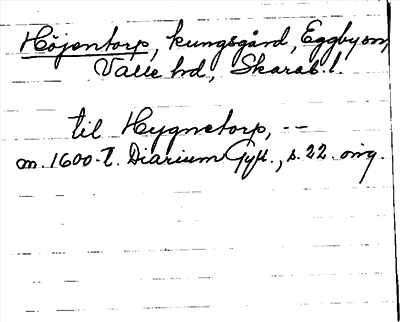 Höjentorp, kungsgård, Eggby sn,
Valle hd, Skarab. l.
til Hygnetorp, --
m. 1600-t. Diarium Gyll., s. 22. orig.